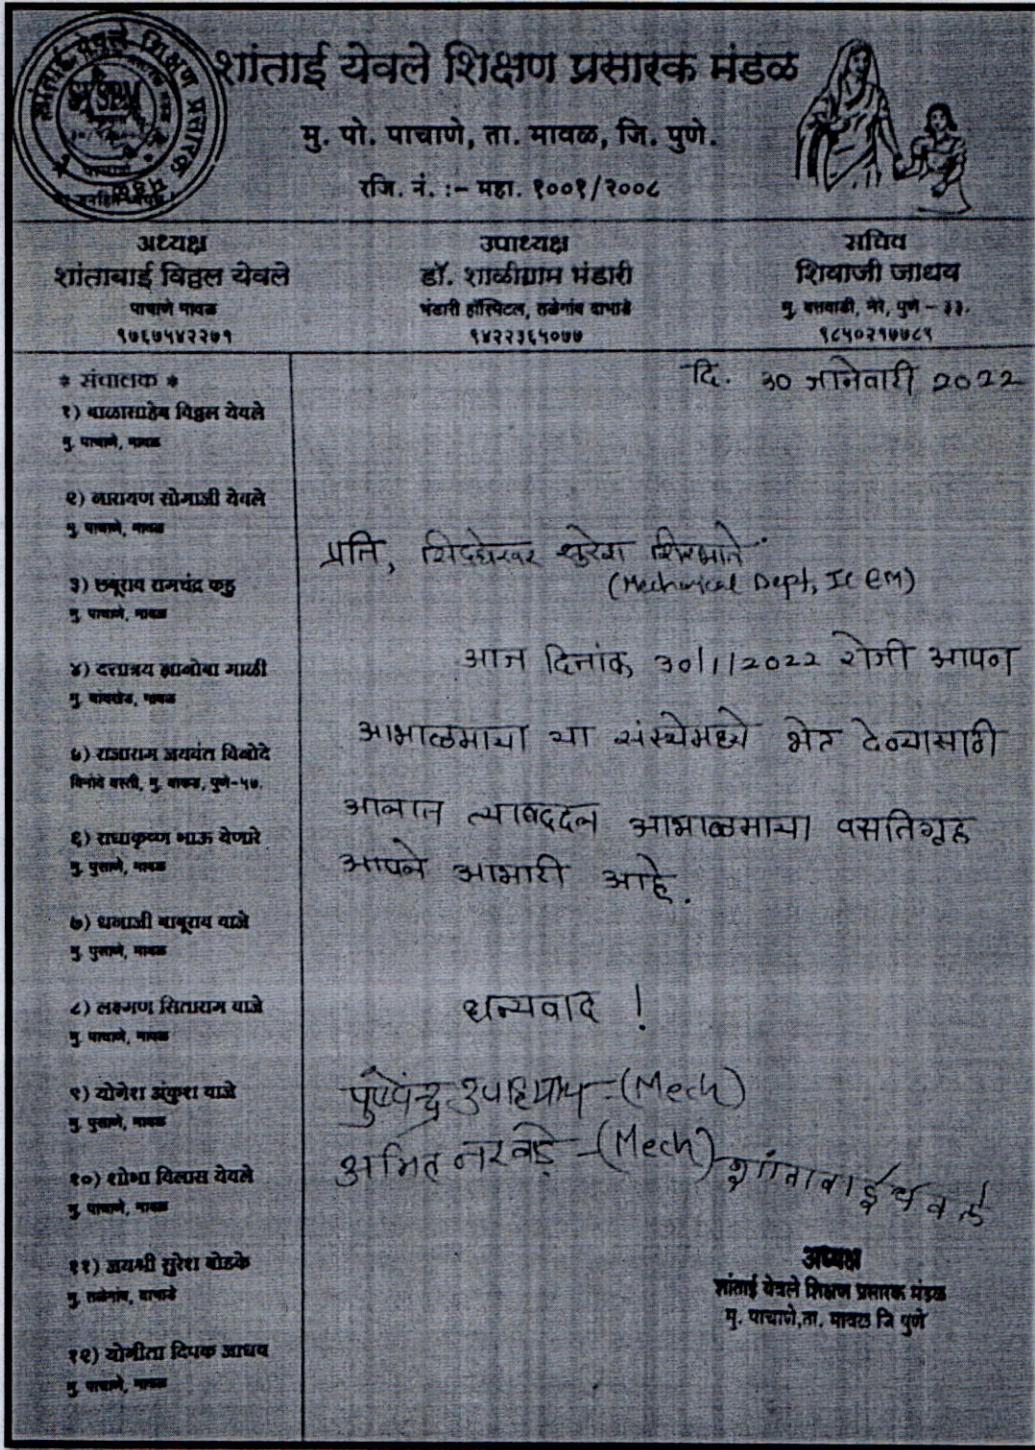 शांताई येवले शिक्षण प्रसारक मंडळ
मु. पो. पाचाणे, ता. मावळ, जि. पुणे.
रजि. नं. :- महा. १००१/२००८
अध्यक्ष
शांताबाई विठ्ठल येवले
पाचाणे मावळ
९७६७५४२२७१
उपाध्यक्ष
डॉ. शाळीग्राम भंडारी
भंडारी हॉस्पिटल, तळेगांव दाभाडे
९४२२३६५०७७
सचिव
शिवाजी जाधव
मु. नेरे, पुणे - ३३.
९८५०२१७७८९
* संचालक *
१) बाळासाहेब विठ्ठल येवले
मु. पाचाणे, मावळ
२) नारायण सोमाजी येवले
मु. पाचाणे, मावळ
३) छबूराव रामचंद्र कडु
मु. पाचाणे, मावळ
४) दत्तात्रय ज्ञानोबा माळी
मु. मावळ
५) राजाराम जयवंत विनोदे
विनोदे वस्ती, मु. वाकड, पुणे-५७.
६) राधाकृष्ण भाऊ येणारे
मु. पुसाणे, मावळ
७) धनाजी बाबूराव वाजे
मु. पुसाणे, मावळ
८) लक्ष्मण सिताराम वाजे
मु. पाचाणे, मावळ
९) योगेश अंकुश वाजे
मु. पुसाणे, मावळ
१०) शोभा विलास येवले
मु. पाचाणे, मावळ
११) जयश्री सुरेश बोडके
मु. तळेगांव, दाभाडे
१२) योगीता दिपक जाधव
मु. पाचाणे, मावळ
दि. ३० जानेवारी 2022
प्रति, सिद्धेश्वर सुरेश
(Mechanical Dept, ICEM)
आज दिनांक ३०/1/2022 रोजी आपण
आभाळमाया या संस्थेमध्ये भेट देण्यासाठी
आलात त्याबद्दल आभाळमाया वसतिगृह
आपले आभारी आहे.
धन्यवाद !
पुष्पेंद्र उपाध्याय - (Mech)
अमित नरवडे - (Mech)
शांताबाई येवले
अध्यक्ष
शांताई येवले शिक्षण प्रसारक मंडळ
मु. पाचाणे, ता. मावळ जि पुणे